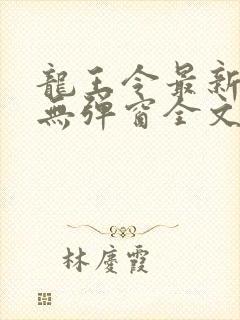 龍王令最新
無彈窗全文
林慶霞